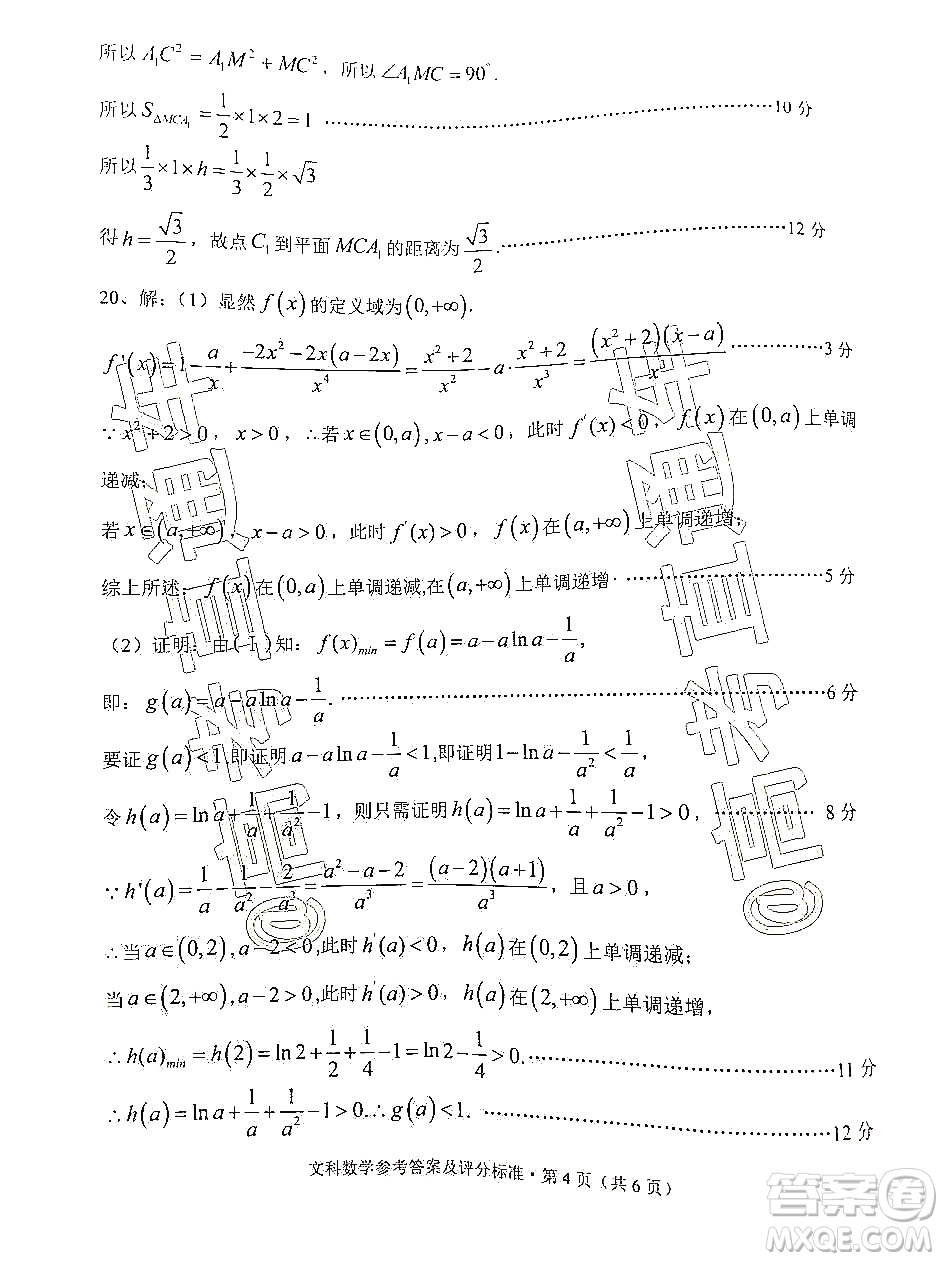 所以 A₁C² = A₁M² + MC², 所以 ∠A₁MC = 90°.
所以 S_{△MCA₁} = 1/2 × 1 × 2 = 1 ………………10 分
所以 1/3 × 1 × h = 1/3 × 1/2 × √3
得 h = √3/2, 故点 C₁ 到平面 MCA₁ 的距离为 √3/2. ………………12 分
20、解:(1) 显然 f(x) 的定义域为 (0,+∞).
f'(x) = 1 - a/x + (-2x² - 2x(a-2x))/x⁴ = (x²+2)/x² - a·(x²+2)/x³ = (x²+2)(x-a)/x³ …………3 分
∵ x²+2>0, x>0, ∴若 x∈(0,a), x-a<0, 此时 f'(x)<0, f(x) 在 (0,a) 上单调
递减;
若 x∈(a,+∞), x-a>0, 此时 f'(x)>0, f(x) 在 (a,+∞) 上单调递增;
综上所述: f(x) 在 (0,a) 上单调递减,在 (a,+∞) 上单调递增 ………………5 分
(2) 证明: 由(1)知: f(x)_{min} = f(a) = a - a ln a - 1/a,
即: g(a) = a - a ln a - 1/a. ………………6 分
要证 g(a)<1,即证明 a - a ln a - 1/a < 1,即证明 1 - ln a - 1/a² < 1/a,
令 h(a) = ln a + 1/a + 1/a² - 1, 则只需证明 h(a) = ln a + 1/a + 1/a² - 1 > 0, ………… 8 分
∵ h'(a) = 1/a - 1/a² - 2/a³ = (a²-a-2)/a³ = (a-2)(a+1)/a³, 且 a>0,
∴当 a∈(0,2), a-2<0,此时 h'(a)<0, h(a) 在 (0,2) 上单调递减;
当 a∈(2,+∞), a-2>0,此时 h'(a)>0, h(a) 在 (2,+∞) 上单调递增,
∴ h(a)_{min} = h(2) = ln 2 + 1/2 + 1/4 - 1 = ln 2 - 1/4 > 0. ………………11 分
∴ h(a) = ln a + 1/a + 1/a² - 1 > 0. ∴ g(a)<1. ………………12 分
文科数学参考答案及评分标准·第 4 页(共 6 页)
答案卷
MXQE.COM